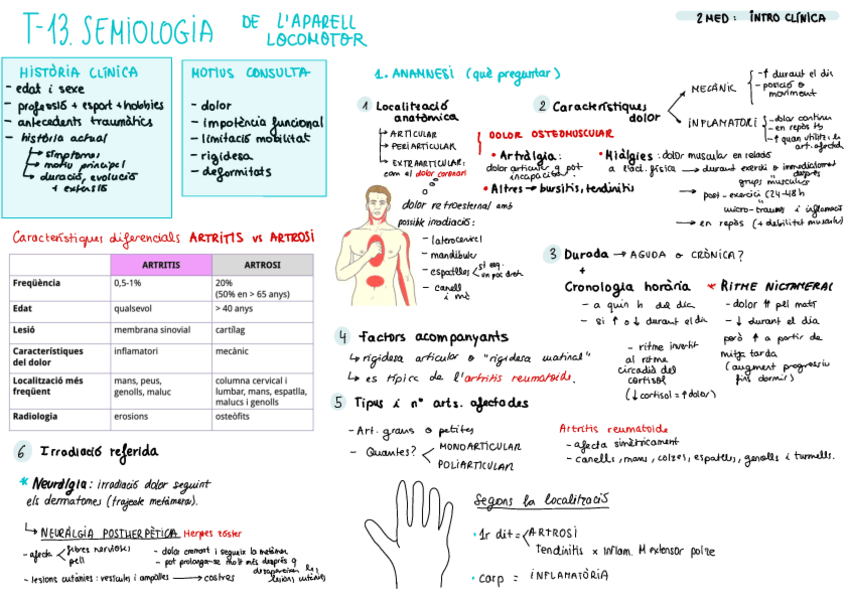 T-13. SEMIOLOGIA DE L'APARELL LOCOMOTOR
2 MED: INTRO CLÍNICA
HISTÒRIA CLÍNICA
- edat i sexe
- professió + esport + hobbies
- antecedents traumàtics
- història actual
símptomes
motiu principal
duració, evolució + extensió
MOTIUS CONSULTA
- dolor
- impotència funcional
- limitació mobilitat
- rigidesa
- deformitats
1. ANAMNESI (què preguntar)
1 Localització anatòmica
ARTICULAR
PERIARTICULAR
EXTRAARTICULAR:
com el dolor coronari
dolor retroesternal amb
possible irradiació:
- laterocervical
- mandíbula
- espatlles
- canell
2 Característiques dolor
MECÀNIC
- ↑ durant el dia
- posició o moviment
INFLAMATORI
- dolor continu
- en repòs
↑ quan utilitzes
art. afectada
DOLOR OSTEOMUSCULAR
• Artràlgia:
dolor articular q pot
incapacitar
• Altres → bursitis, tendinitis
• Miàlgies: dolor muscular en relació
a l'act. física → durant exercici o immediatament
després
grups musculars
→ post-exercici (24-48h
micro-traumes i inflamació
→ en repòs (+ debilitat muscular)
3 Durada → AGUDA o CRÒNICA?
+
Cronologia horària
- a quin h del dia
- si ↑ o ↓ durant el dia
* RITME NICTAMERAL
- dolor ↑↑ pel matí
- ↓ durant el dia
però ↑ a partir de
mitja tarda
(augment progressiu
fins dormir)
- ritme invertit
al ritme
circadià del
cortisol
(↓cortisol = ↑dolor)
Característiques diferencials ARTRITIS vs ARTROSI
ARTRITIS ARTROSI
Freqüència 0,5-1% 20% (50% en > 65 anys)
Edat qualsevol > 40 anys
Lesió membrana sinovial cartílag
Característiques del dolor inflamatori mecànic
Localització més freqüent mans, peus, genolls, maluc columna cervical i lumbar, mans, espatlla, malucs i genolls
Radiologia erosions osteòfits
4 Factors acompanyants
↳ rigidesa articular o "rigidesa matinal"
↳ es típica de l'artritis reumatoide.
5 Tipus i nº arts. afectades
- Art. grans o petites
- Quantes? < MONOARTICULAR
POLIARTICULAR
Artritis reumatoide
- afecta simètricament
- canells, mans, colzes, espatlles, genolls i turmells.
6 Irradiació referida
* Neuràlgia: irradiació dolor seguint
els dermatomes (trajecte metàmeras).
↳ NEURÀLGIA POSTHERPÈTICA Herpes zòster
- afecta < fibres nervioses
pell
- dolor cremant i segueix la metàmera
- pot prolongar-se molt més després q
desapareixen les
lesions cutànies
- lesions cutànies: vesícules i ampolles → costres
Segons la localització
• 1r dit = < ARTROSI
Tendinitis x inflam. M extensor polze
• carp = INFLAMATÒRIA